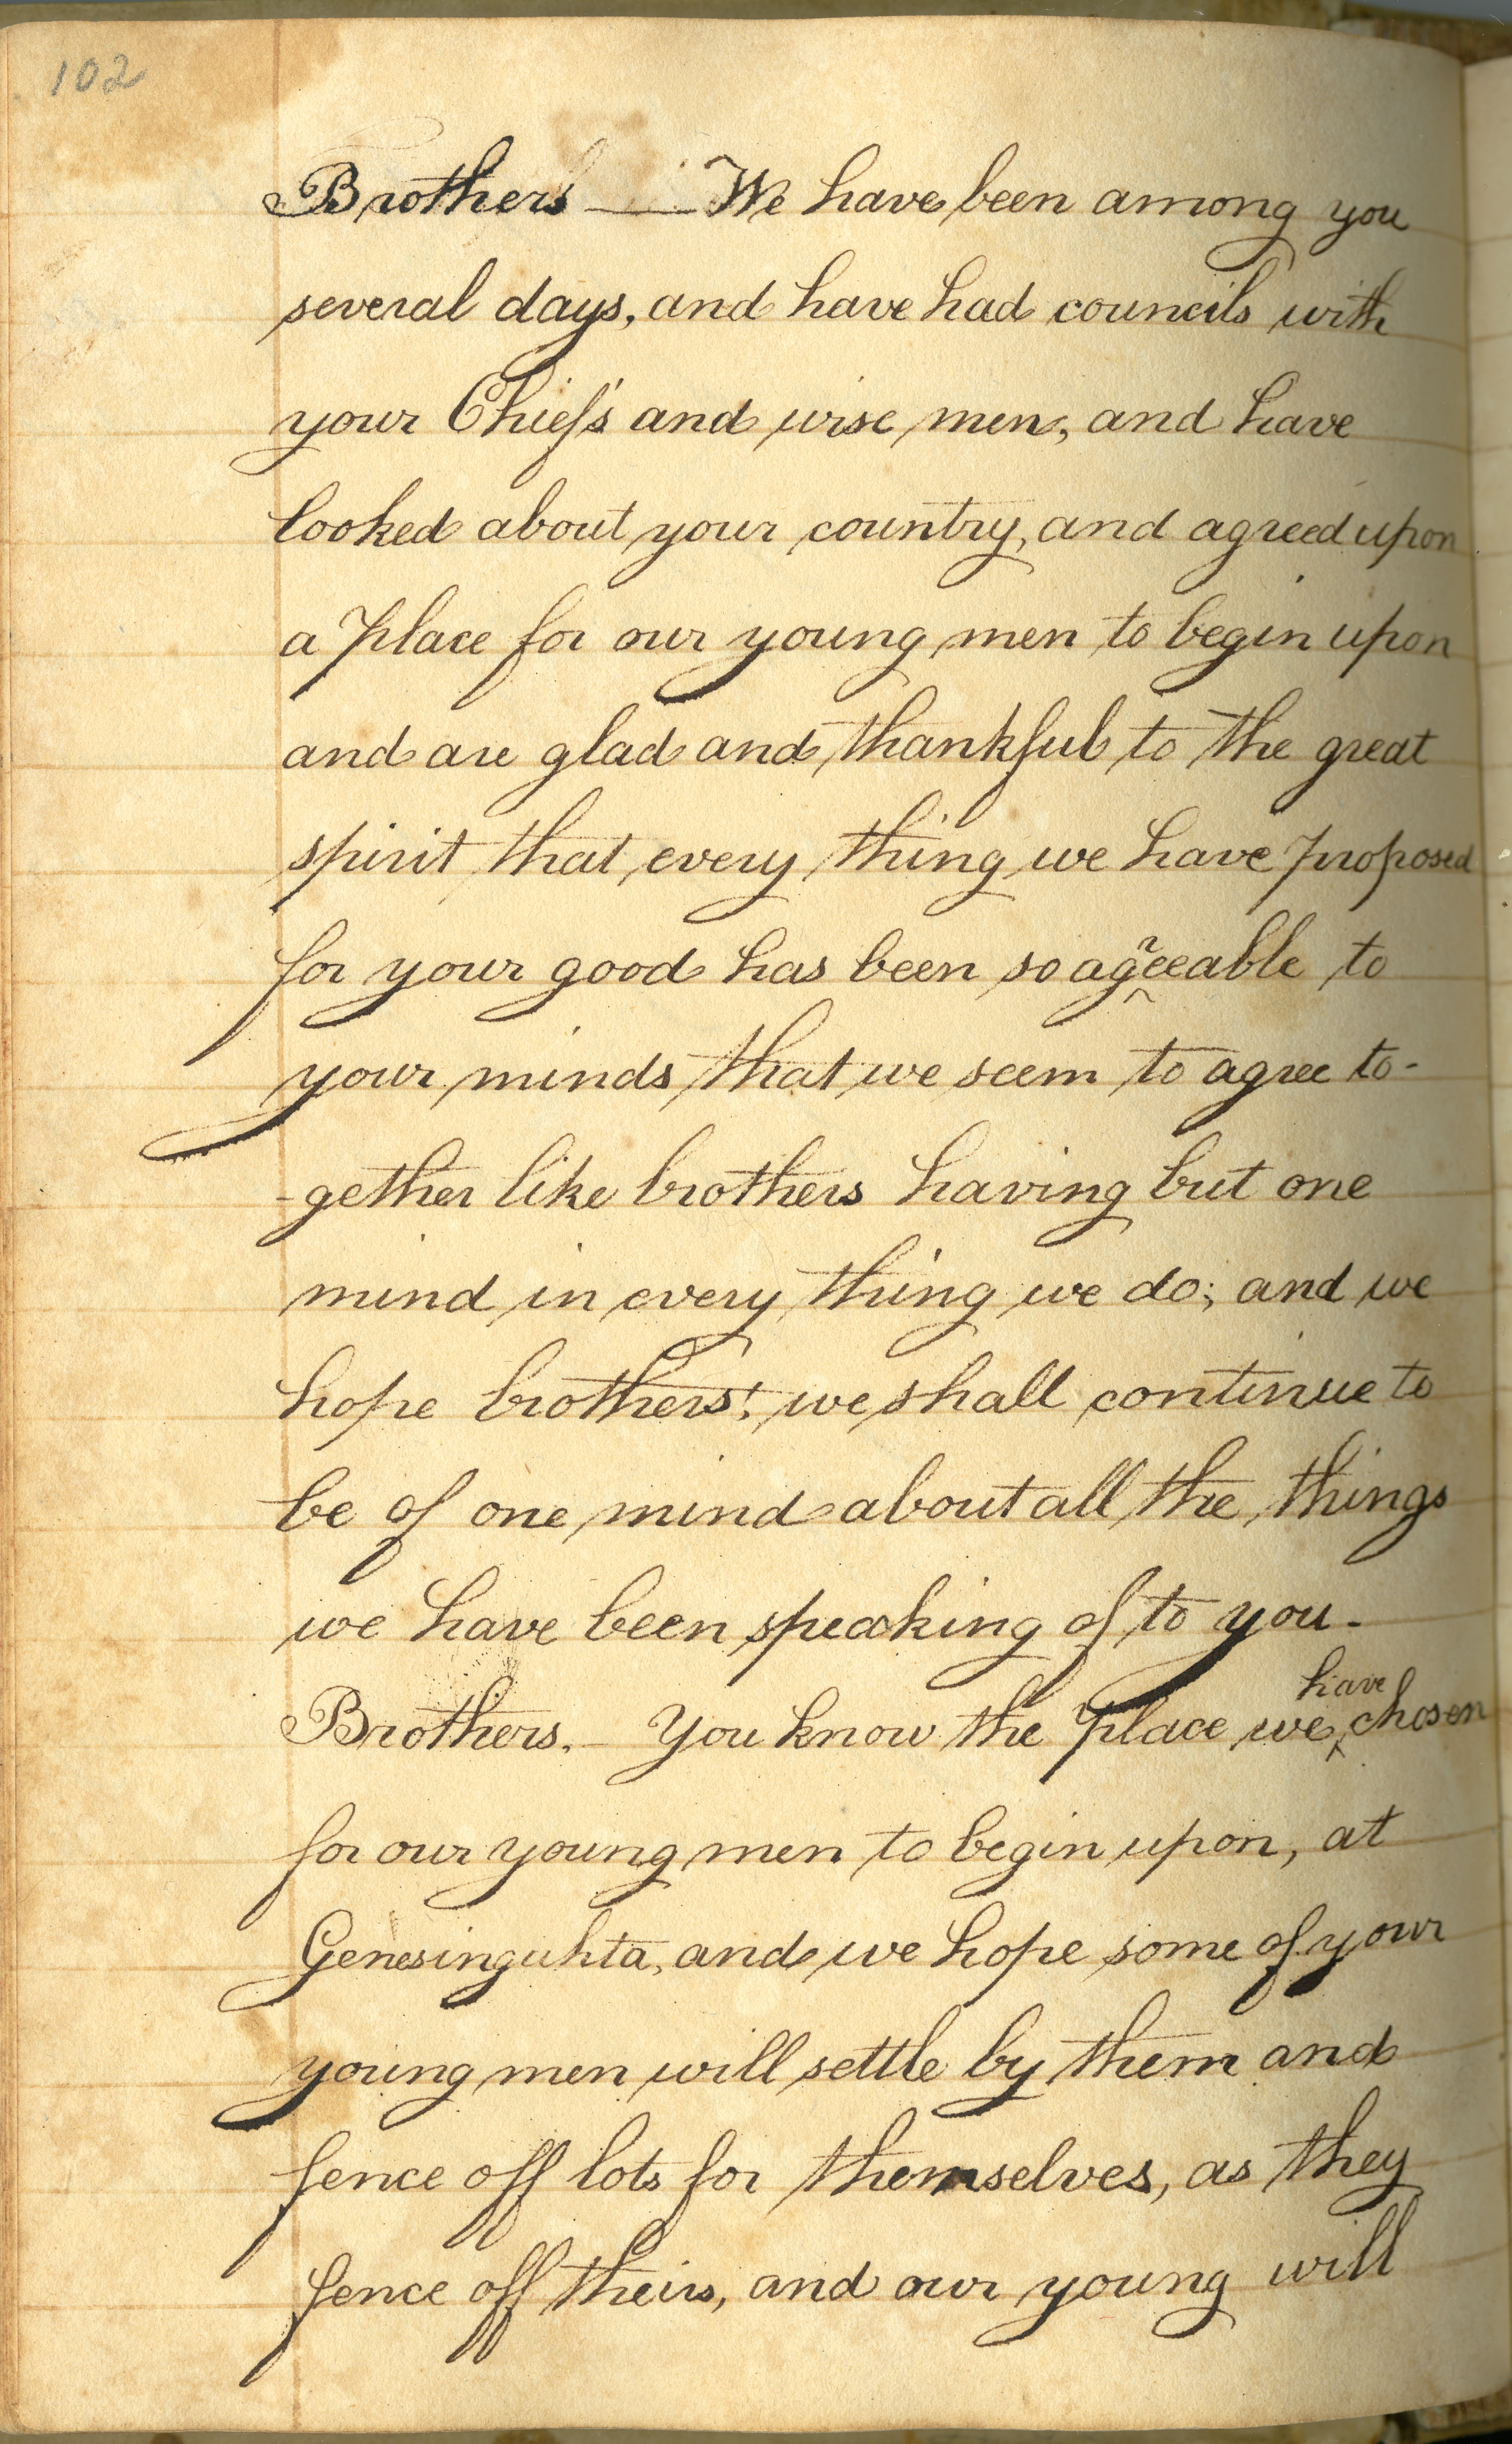 102
Brothers — We have been among you
several days, and have had councils with
your Chiefs and wise men, and have
looked about your country, and agreed upon
a place for our young men to begin upon
and are glad and thankful to the great
spirit that every thing we have proposed
for your good has been so agreeable to
your minds that we seem to agree to-
-gether like brothers having but one
mind in every thing we do; and we
hope brothers! we shall continue to
be of one mind about all the things
we have been speaking of to you.
Brothers. — You know the place we have chosen
for our young men to begin upon, at
Genesinguhta, and we hope some of your
young men will settle by them and
fence off lots for themselves, as they
fence off theirs, and our young will